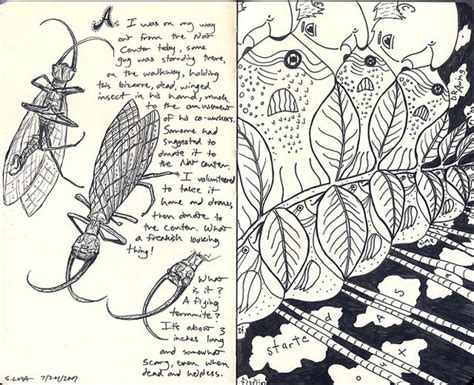 As I was on my way
out from the Nat
Center today, some
guy was standing there,
on the walkway, holding
this bizarre, dead, winged
insect in his hand, much
to the amusement
of his co-workers.
Someone had
suggested to
donate it to
the Nat Center.
I volunteered
to take it
home and draw,
then donate to
the center. What
a freakish looking
thing!
What
is it?
A flying
termite?
It's about 3
inches long
and somewhat
scary, even when
dead and helpless.
started